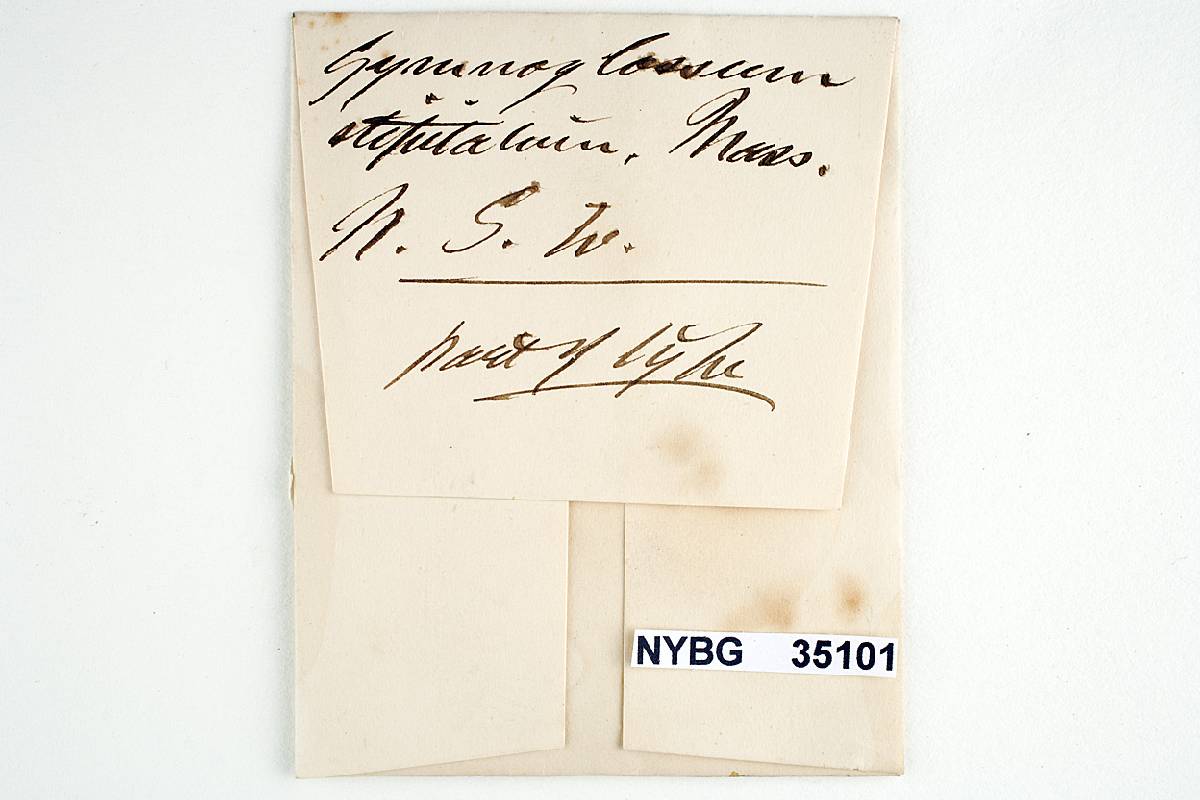 Gymnoglossum
stipitatum, Mass.
N. S. W.
part of type
NYBG 35101